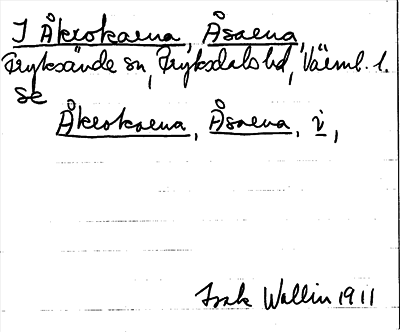 I Åkrokarna, Åsarna,
Fryksände sn, Fryksdals hd, Värml. l.
se
Åkrokarna, Åsarna, i,
Isak Wallin 1911